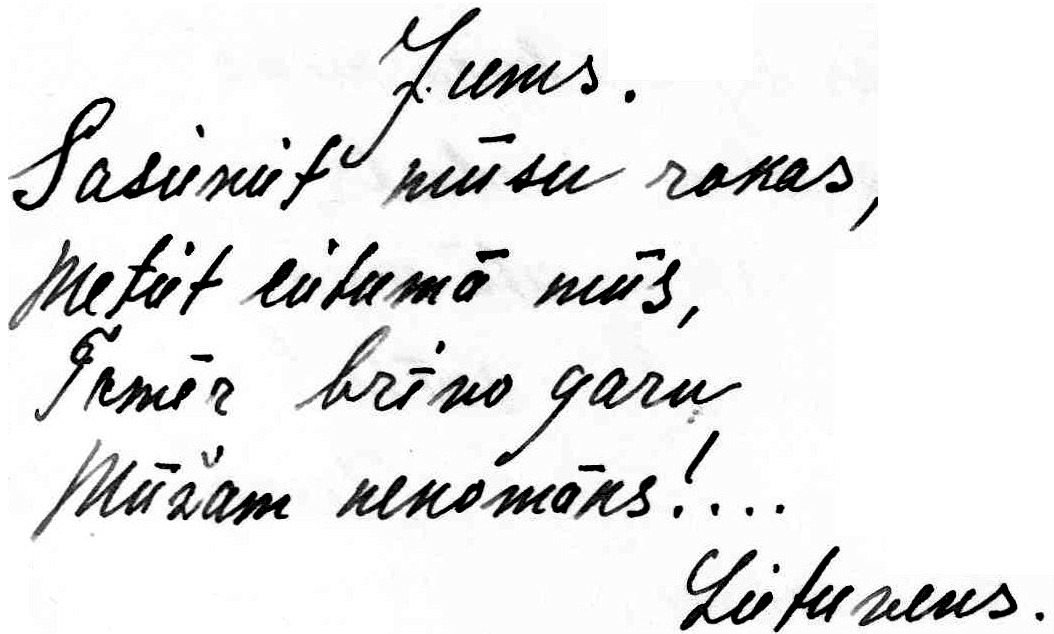 Jums.
Sasieniet mūsu rokas,
Metiet cietumā mūs,
Tomēr brīvo garu
Mūžam nenomāks!...
Lietuvens.